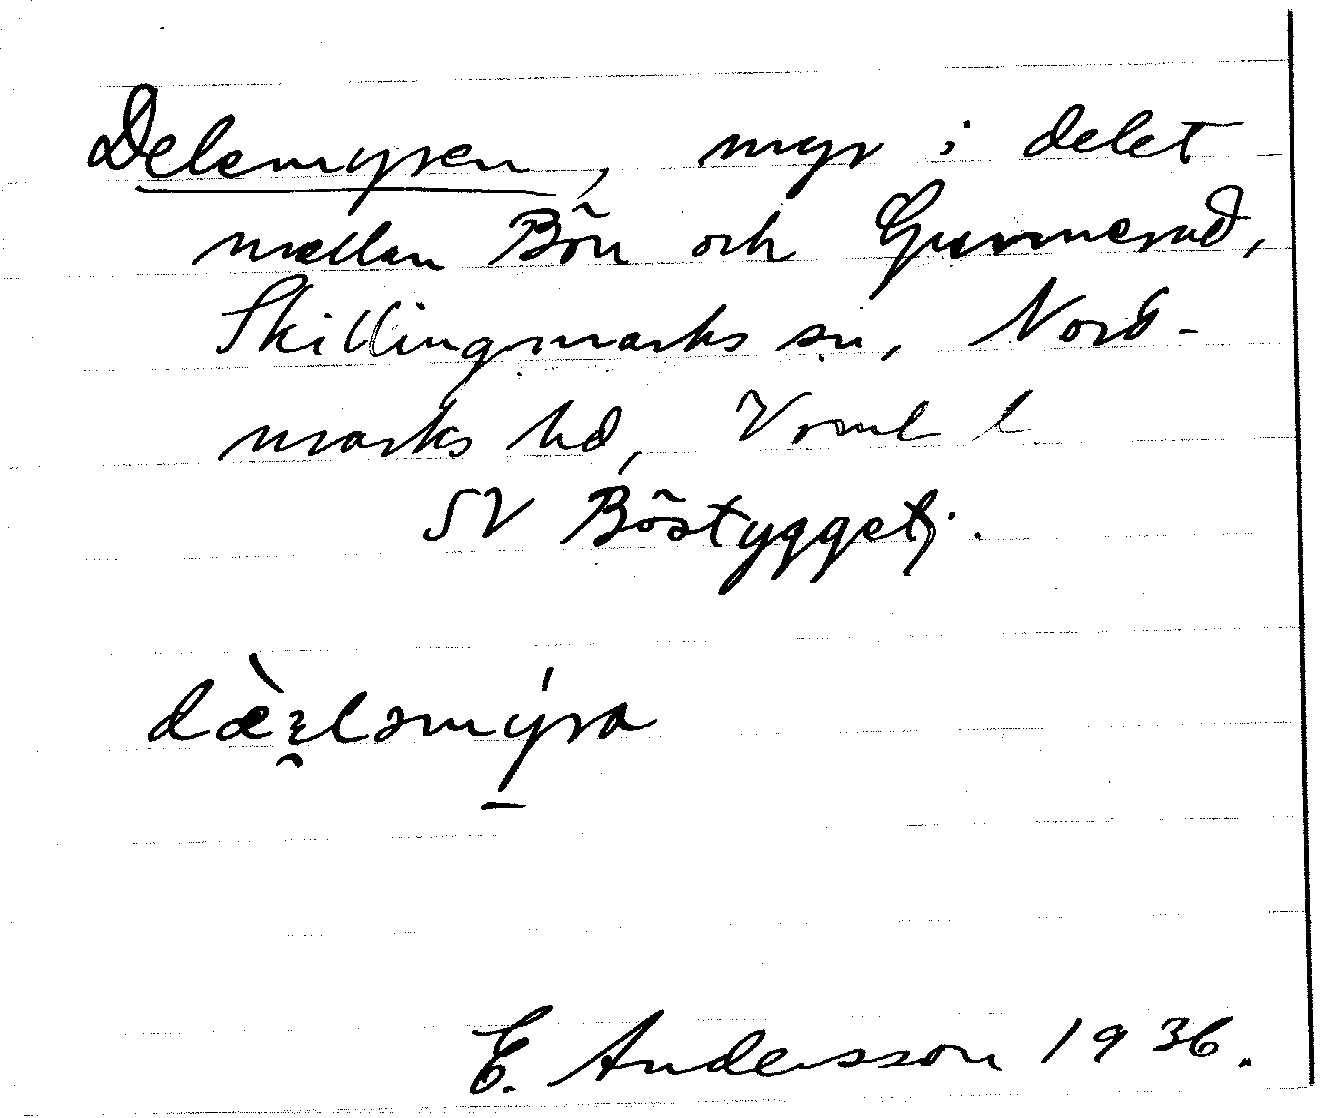 Delemyren, myr i delet
mellan Bön och Gunnerud,
Skillingmarks sn, Nord-
marks hd, Vrml l
SV Böstyggetj.
dæ̀ɛləmýra
E. Andersson 1936.